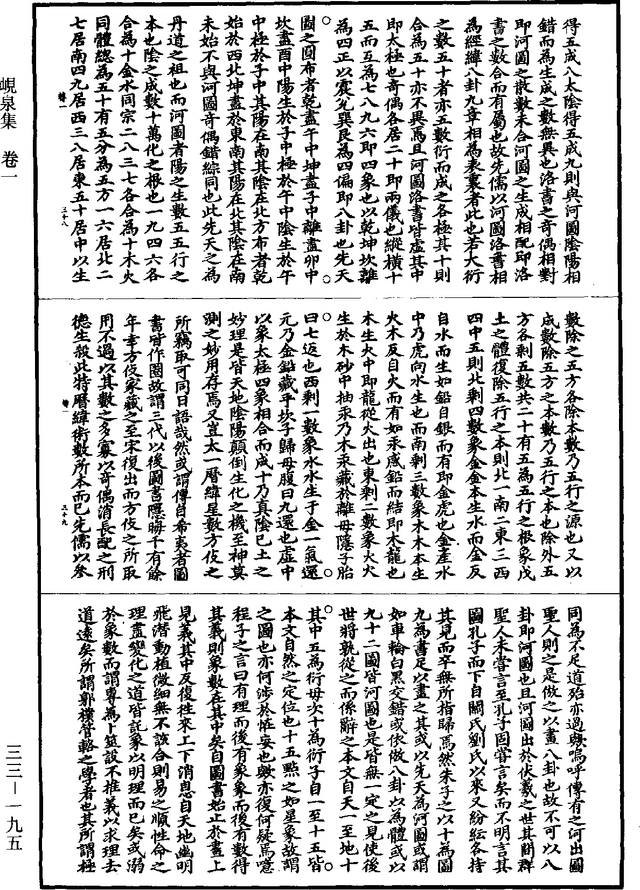 得五成八太陰得五成九則與河圖陰陽相
錯而為生成之數無異也洛書之奇偶相對
即河圖之散數未合河圖之生成相配即洛
書之數合而有屬也故先儒以河圖洛書相
為經緯八卦九章相為表裏者此也若大衍
之數五十者亦五數衍而成之各極其十則
合為五十亦不異焉且河圖洛書皆虛其中
即太極也奇偶各居二十即兩儀也縱橫十
五而互為七八九六即四象也以乾坤坎離
為四正以震兌巽艮為四偏即八卦也先天
圖之圓布者乾盡午中坤盡子中離盡卯中
坎盡酉中陽生於子中極於午中陰生於午
中極於子中其陽在南其陰在北方布者乾
始於西北坤盡於東南其陽在北其陰在南
未始不與河圖奇偶錯綜同也此先天之為
丹道之祖也而河圖者陽之生數五五行之
本也陰之成數十萬化之根也一九四六各
合為十金水同宗二八三七各合為十木火
同體總為五十有五分為五方一六居北二
七居南四九居西三八居東五十居中以生
數除之五方各除本數乃五行之源也又以
成數除五方之本數乃五行之本也除外五
方各剩五數共二十有五為五行之根象戊
土之體復除五行之本則北一南二東三西
四中五則北剩四數象金金本生水而金反
自水而生如鉛自銀而有即金虎也金產水
中乃虎向水生也而南剩三數象木木本生
火木反自火而有如汞感鉛而結即木龍也
本生火中即龍從火出也東剩二數象火火
生於木砂中抽汞乃木汞藏於離母隱子胎
曰七返也西剩一數象水水生于金一氣還
元乃金鉛藏乎坎子歸母腹曰九還也虛中
以象太極四象相合而成十乃真陰己土之
妙理是皆天地陰陽顛倒生化之機至神莫
測之妙用存焉又豈太一曆緯星數方伎之
所竊取可同日語哉然或謂傳自希夷者圖
書皆作圈故謂三代以後圖書應晦千有餘
年幸方伎家藏之至宋復出而方伎之所取
用不過以其數之多寡以奇偶消長配之刑
德生殺此特曆緯術數所本而已先儒以參
同為不足道殆亦過歟嗚呼傳有之河出圖
聖人則之是倣之以畫八卦也故不可以八
卦即河圖也且河圖出於伏羲之世其間群
聖人未嘗言至孔子固嘗言矣而不明言其
圖孔子而下自關氏劉氏以來又紛紜各持
其見而卒無所指歸焉然朱子之以十為圖
九為書足以盡之其或以先天為河圖或謂
如車輪白黑交錯或依倣八卦以為體或以
九十二國皆河圖也是皆無一定之見使後
世將孰從之而係辭之本文自天一至地十
其中五為衍母次十為衍子自一至十五皆
本文自然之定位也十五點之如星象故謂
之圖也亦何涉於怪妄也歟亦復何疑焉噫
程子之言曰有理而後有象象而後有數得
其義則象數在其中矣自圖書始止於畫上
見義其中反復往來上下消息自天地幽明
飛潛動植微細無不該合則易之順性命之
理盡變化之道皆託象以明理而已矣或溺
於象數而謂專為卜筮設不推義以求理去
道遠矣所謂郭樸管輅之學者也其所謂極
峴泉集 卷一
三三—一九五